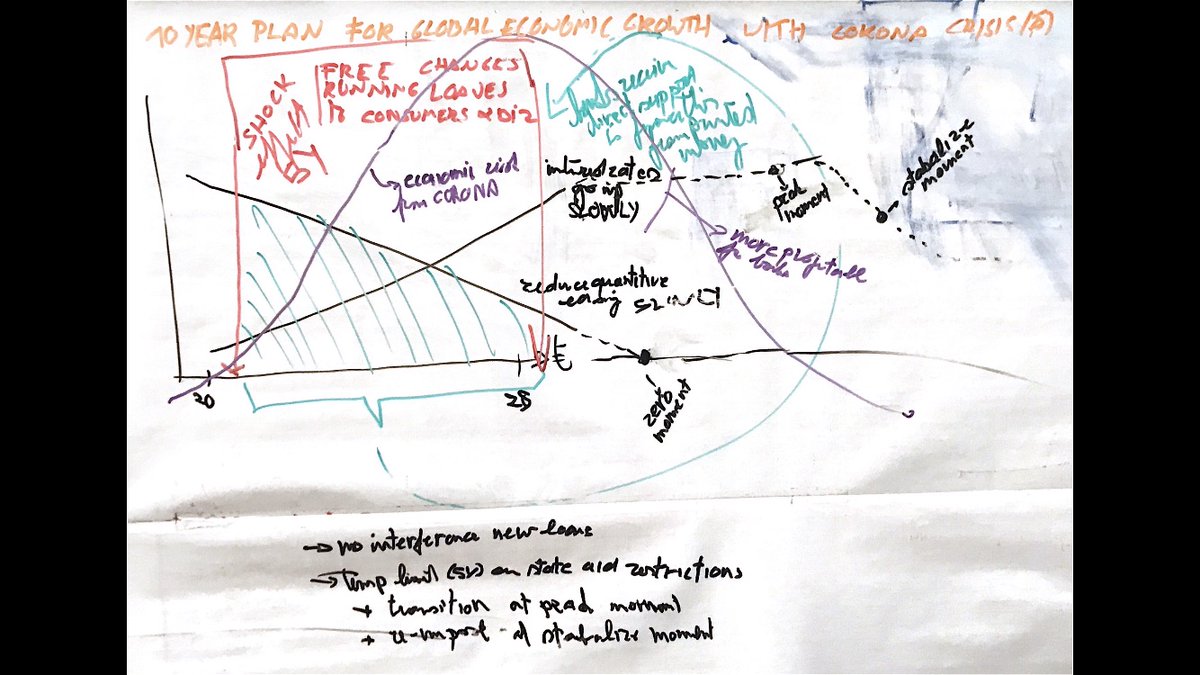 10 YEAR PLAN FOR GLOBAL ECONOMIC GROWTH WITH CORONA CRISIS
SHOCK
FREE CHANGES
RUNNING LOANES
TO CONSUMERS
direct support
from printed
money
economic risk
from CORONA
interest rates
going
SLOWLY
peak
moment
stabalize
moment
more profitable
for banks
reduce quantitive
easing
t
20
25
zero
moment
→ no interference new loans
→ Temp limit (5Y) on state aid restrictions
+ transition at peak moment
+ re-impost at stabalize moment